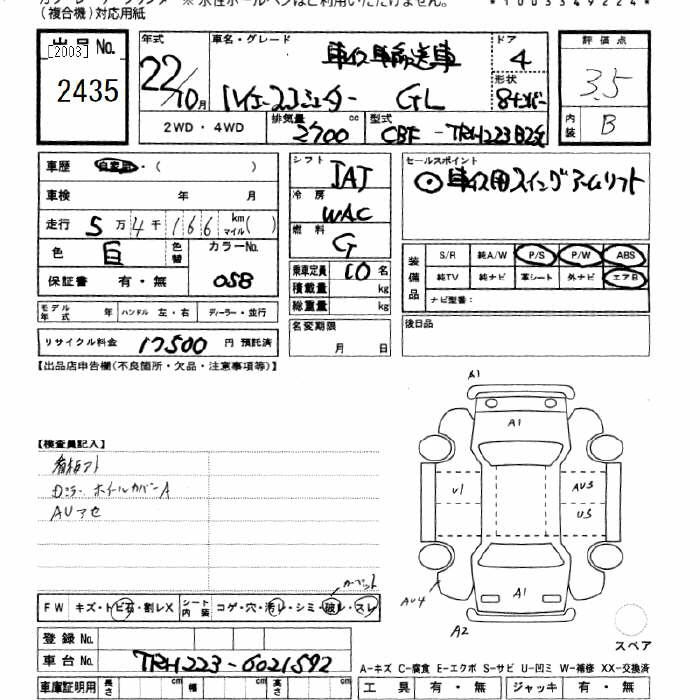 (複合機)対応用紙
*1003349224*
出品 No.
[2003]
2435
年式
22/10月
車名・グレード
車イス車輸送車
ハイエースコミューター GL
ドア
4
形状
8ナンバー
2WD・4WD
排気量
2700 cc
型式
CBF-TRH223B改
評価点
3.5
内装
B
車歴 自家用・( )
車検 年 月
走行 5万4千166 km マイル( )
色 白 色替
カラーNo. 058
保証書 有・無
モデル年式 年 ハンドル 左・右 ディーラー・並行
リサイクル料金 17500 円 預託済
シフト
IAT
冷房
WAC
燃料
G
乗車定員 10 名
積載量 kg
総重量 kg
名変期限
月 日
セールスポイント
車イス用スイングアームリフト
装備品
S/R 純A/W P/S P/W ABS
純TV 純ナビ 革シート 外ナビ エアB
ナビ型番:
後日品
【出品店申告欄(不良箇所・欠品・注意事項等)】
【検査員記入】
看板アト
ホイールカバーA
AUアセ
カーペット
FW キズ・トビ石・割レX シート内装 コゲ・穴・汚レ・シミ・破レ・スレ
登録 No.
車台 No. TRH223-6021592
車庫証明用 長さ cm 幅 cm 高さ cm
A1
A1
U1
AU3
U3
A1
AU4
A2
スペア
A-キズ C-腐食 E-エクボ S-サビ U-凹ミ W-補修 XX-交換済
工具 有・無 ジャッキ 有・無